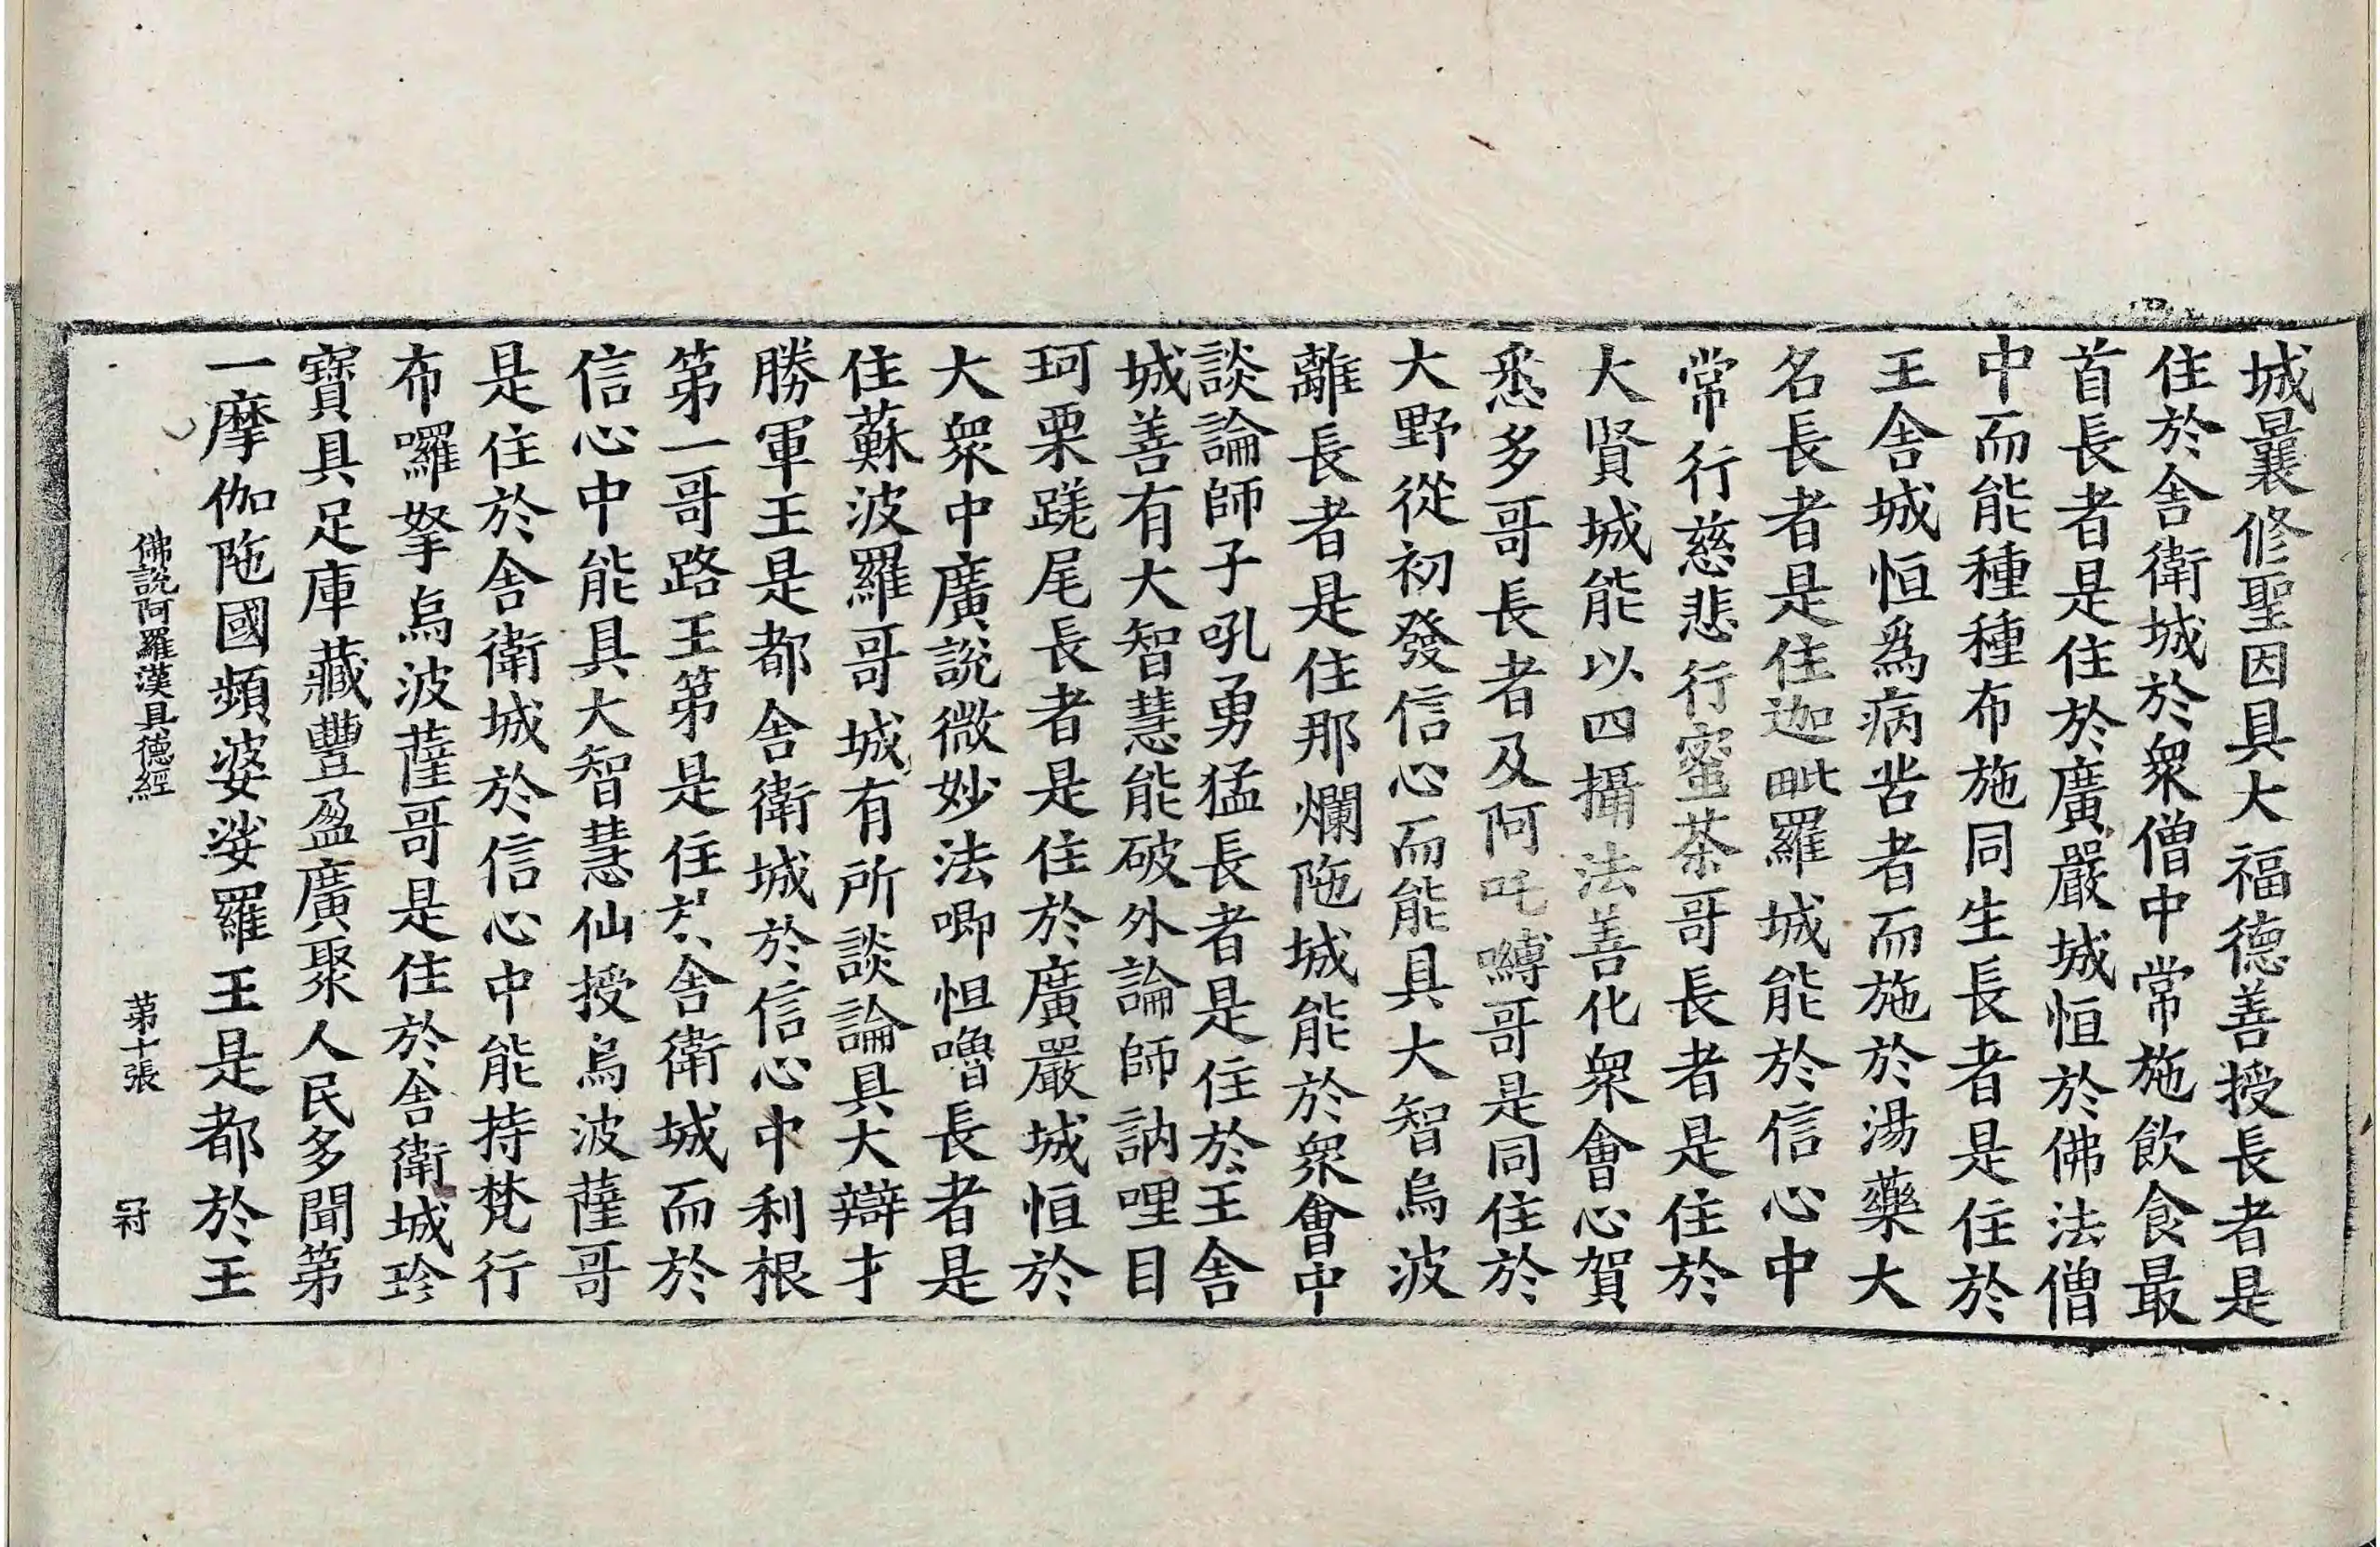 城曩修聖因具大福德善授長者是
住於舍衛城於衆僧中常施飲食最
首長者是住於廣嚴城恒於佛法僧
中而能種種布施同生長者是住於
王舍城恒爲病苦者而施於湯藥大
名長者是住迦毗羅城能於信心中
常行慈悲行蜜茶哥長者是住於
大賢城能以四攝法善化衆會心賀
悉多哥長者及阿吒嚩哥是同住於
大野從初發信心而能具大智烏波
離長者是住那爛陁城能於衆會中
談論師子吼勇猛長者是住於王舍
城善有大智慧能破外論師訥哩目
珂栗蹉尾長者是住於廣嚴城恒於
大衆中廣說微妙法唧怛嚕長者是
住蘇波羅哥城有所談論具大辯才
勝軍王是都舍衛城於信心中利根
第一哥路王第是住於舍衛城而於
信心中能具大智慧仙授烏波薩哥
是住於舍衛城於信心中能持梵行
布囉拏烏波薩哥是住於舍衛城珍
寶具足庫藏豐盈廣聚人民多聞第
一摩伽陁國頻婆娑羅王是都於王
佛說阿羅漢具德經 第十張 冠